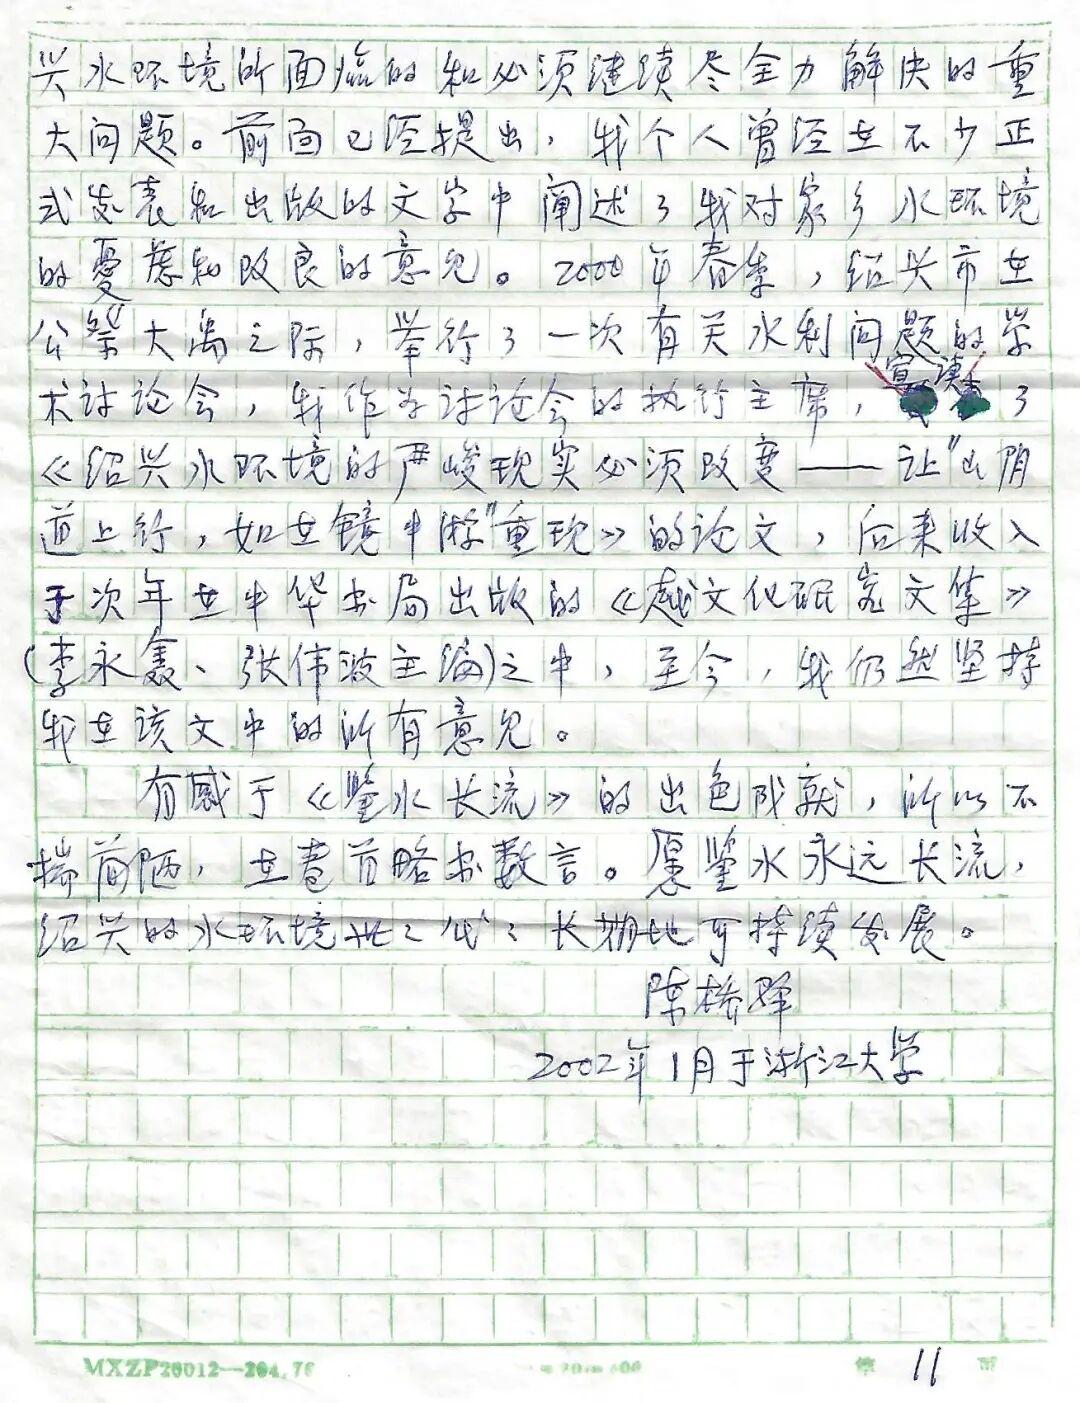 兴水环境所面临的和必须继续尽全力解决的重
大问题。前面已经提出，我个人曾经在不少正
式发表和出版的文字中阐述了我对家乡水环境
的忧虑和改良的意见。2000年春季，绍兴市在
公祭大禹之际，举行了一次有关水利问题的学
术讨论会，我作为讨论会的执行主席，宣读了
《绍兴水环境的严峻现实必须改变——让"山阴
道上行，如在镜中游"重现》的论文，后来收入
于次年在中华书局出版的《越文化研究文集》
(李永鑫、张伟波主编)之中，至今，我仍然坚持
我在该文中的所有意见。
有感于《鉴水长流》的出色成就，所以不
揣简陋，在卷首略书数言。愿鉴水永远长流，
绍兴的水环境世世代代长期地可持续发展。
陈桥驿
2002年1月于浙江大学
MXZP20012—204.76
第 11 页